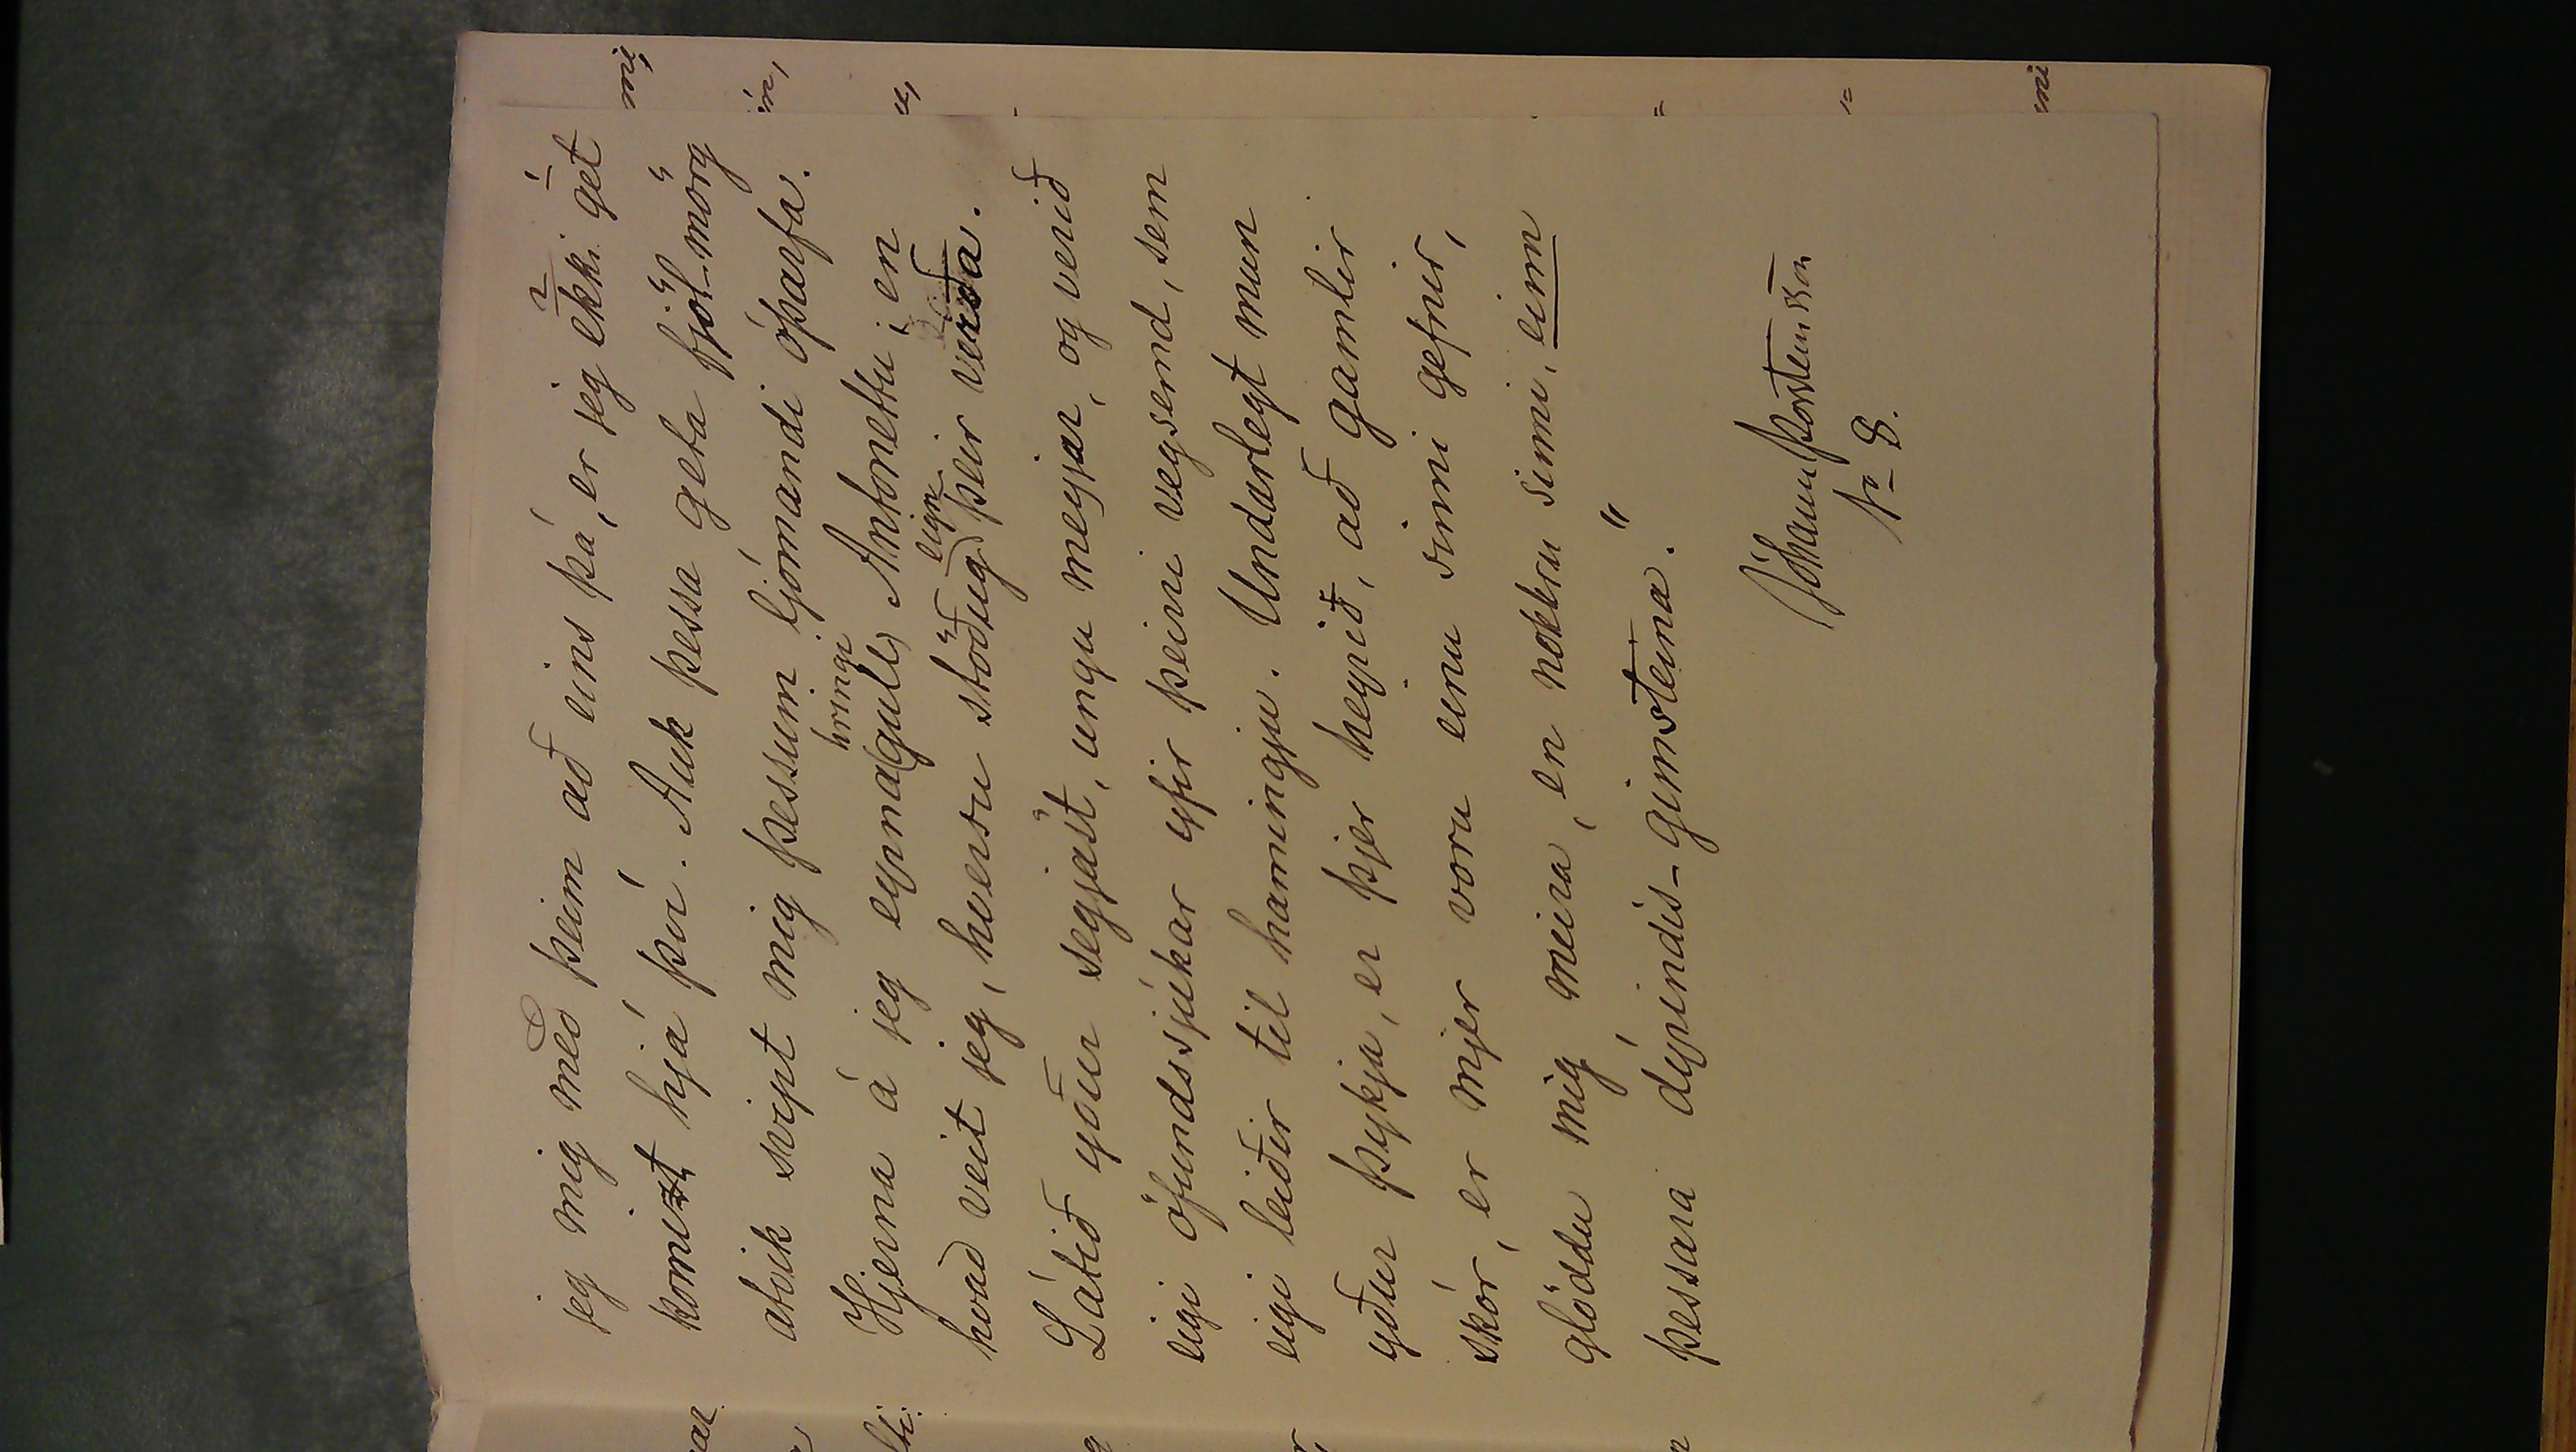 jeg mig með þeim að eins þá, er jeg ekki get
komizt hjá því. Auk þessa geta fjöl-mörg
atvik svipt mig þessum ljómandi óþarfa.
Hjerna á jeg eyrnagull hringi Antonettu; en
hvað veit jeg, hversu stöðug eign þeir verða.
Látið yður segjast, ungu meyjar, og verið
eigi öfundssjúkar yfir þeirri vegsemd, sem
eigi leiðir til hamingju. Undarlegt mun
yður þykja, er þjer heyrið, að gamlir
skór, er mjer voru einu sinni gefnir,
glöddu mig meira, en nokkru sinni, einn
þessara dýrindis-gimsteina."
Jóhann Þorsteinsson
Nr 8.